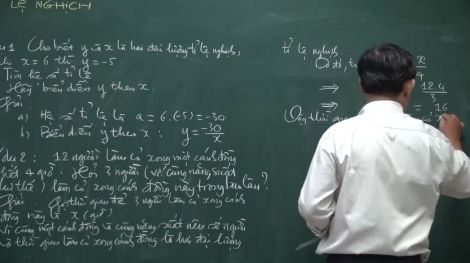 LỆ NGHỊCH
1 Cho biết y và x là hai đại lượng tỉ lệ nghịch,
khi x = 6 thì y = -5
Tìm hệ số tỉ lệ
Hãy biểu diễn y theo x.
Giải:
a) Hệ số tỉ lệ là a = 6.(-5) = -30
b) Biểu diễn y theo x: y = -30/x
dụ 2: 12 người làm cỏ xong một cánh đồng
giờ. Hỏi 3 người (với cùng năng suất
như thế) làm cỏ xong cánh đồng này trong bao lâu?
Giải: Gọi thời gian để 3 người làm cỏ xong cánh
đồng này là x (giờ)
Vì cùng một cánh đồng và cùng năng suất nên số người
và thời gian làm cỏ xong cánh đồng là hai đại lượng
tỉ lệ nghịch.
Do đó, ta x
⇒ 12.4/3
⇒ = 16
Vậy thời gian